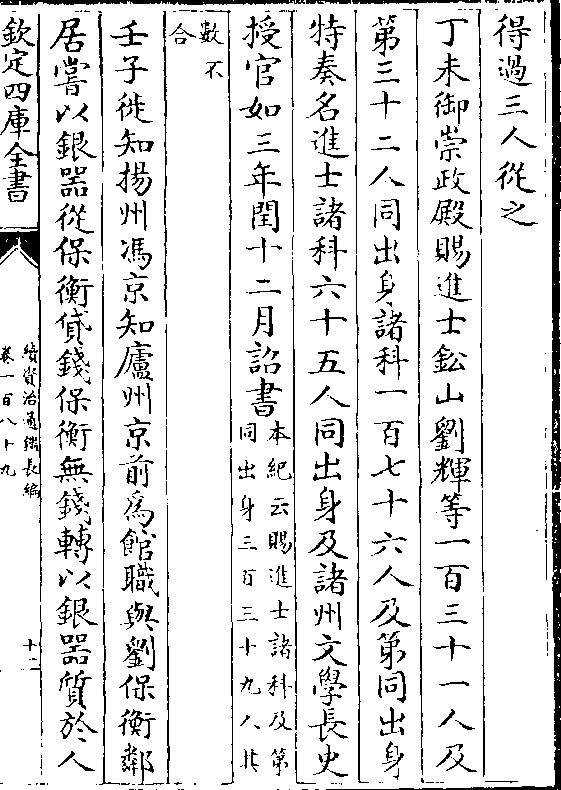 得過三人從之
丁未御崇政殿賜進士鈆山劉輝等一百三十一人及
第三十二人同出身諸科一百七十六人及第同出身
特奏名進士諸科六十五人同出身及諸州文學長史
授官如三年閏十二月詔書
本紀云賜進士諸科及第
同出身三百三十九人其
數不
合
壬子徙知揚州馮京知廬州京前為館職與劉保衡鄰
居嘗以銀器從保衡貸錢保衡無錢轉以銀器質於人
欽定四庫全書
續資治通鑑長編
卷一百八十九
十二